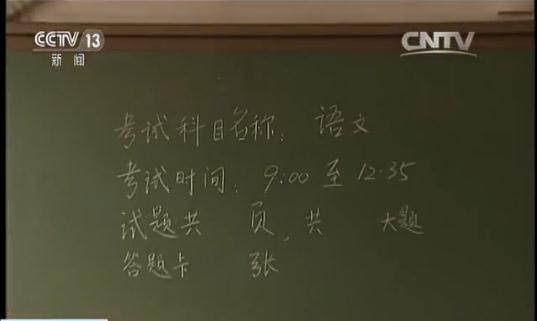 CCTV 13 CNTV
新闻
考试科目名称：语文
考试时间：9:00 至 12:35
试题共 页，共 大题
答题卡 张